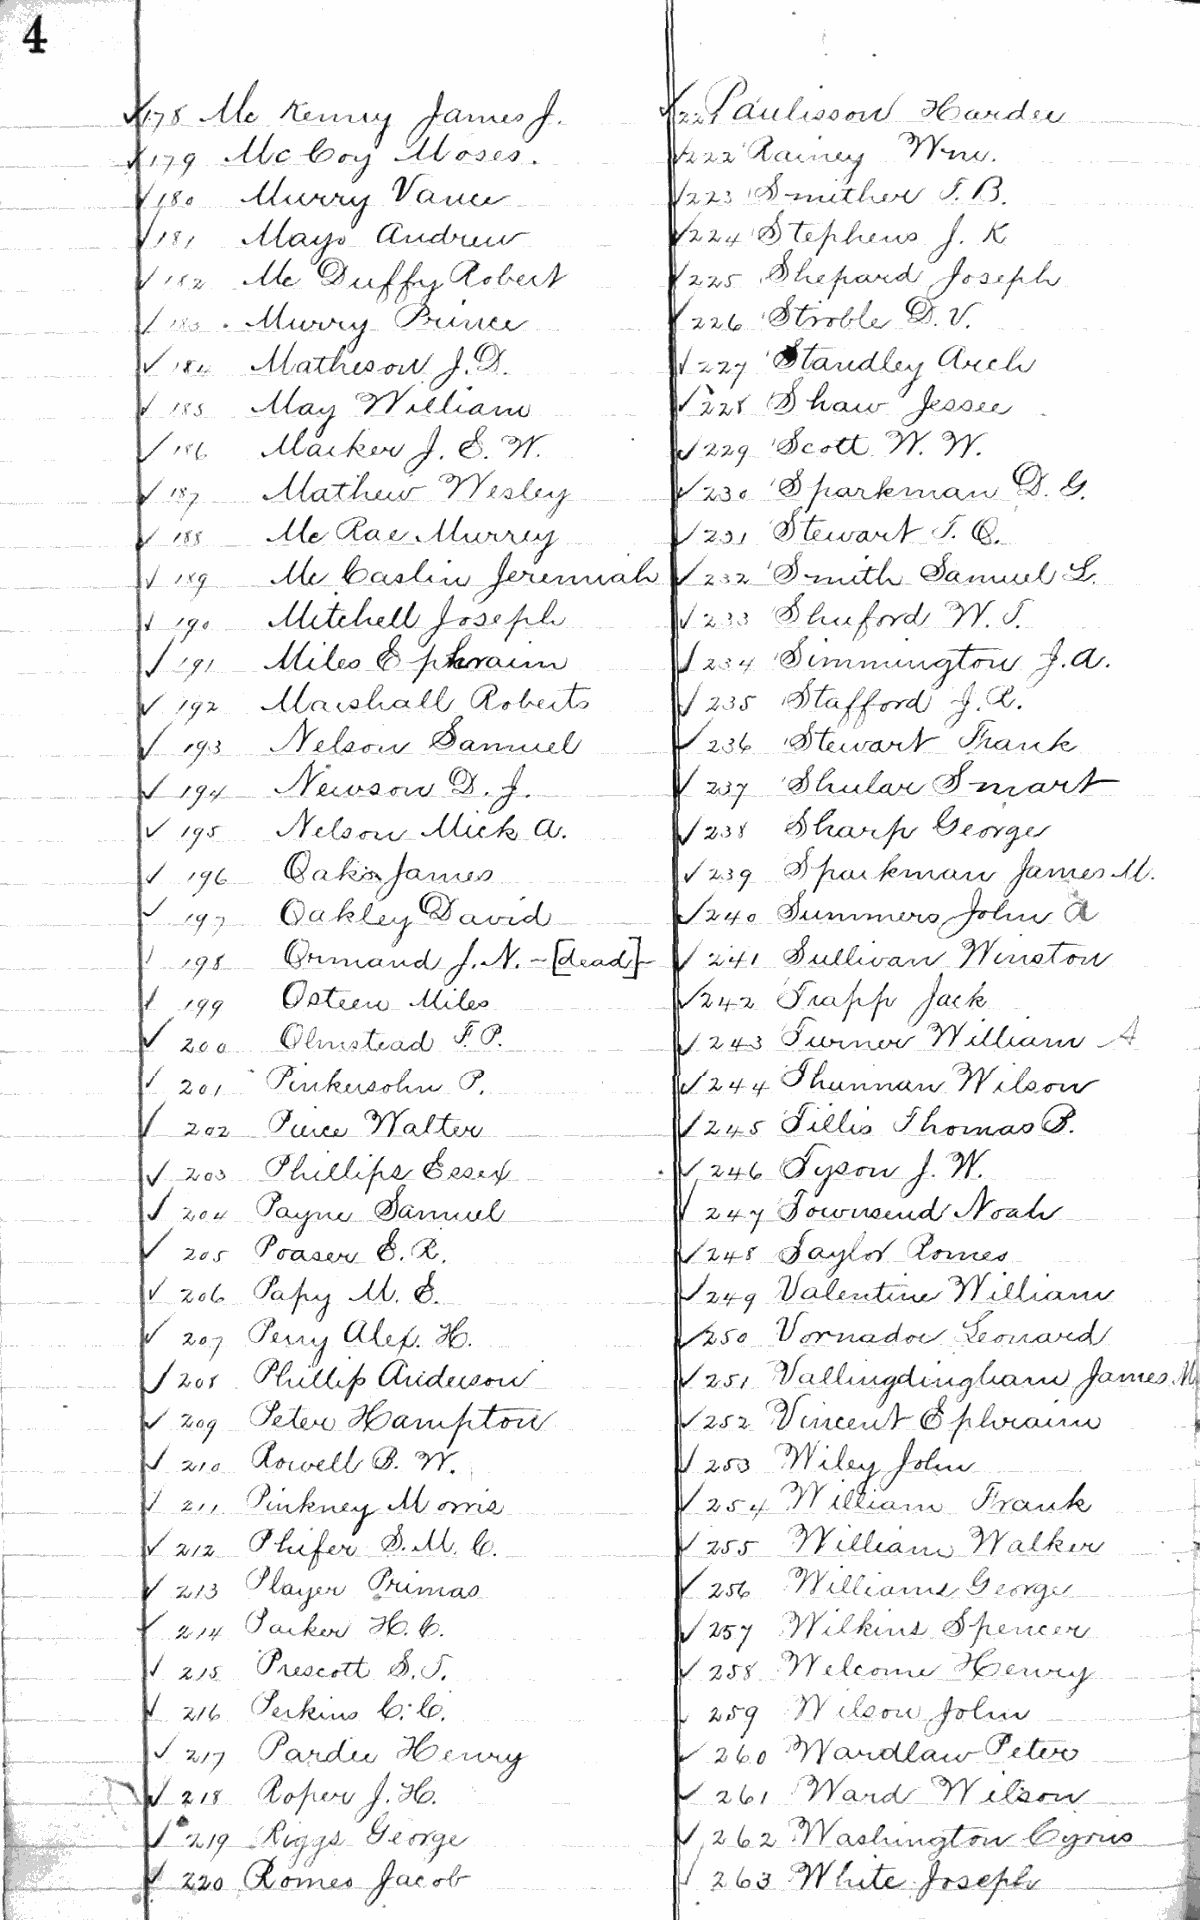 4
✓178 Mc Kenny James J.
✓179 McCoy Moses.
✓180 Murry Vance
✓181 Mayo Andrew
✓182 Mc Duffy Robert
✓183 Murry Prince
✓184 Matheson J. D.
✓185 May William
✓186 Marker J. E. W.
✓187 Mathew Wesley
✓188 Mc Rae Murrey
✓189 Mc Caslin Jeremiah
✓190 Mitchell Joseph
✓191 Miles Ephraim
✓192 Marshall Roberts
✓193 Nelson Samuel
✓194 Newson D. J.
✓195 Nelson Mick A.
✓196 James
✓197 Oakley David
198 Ormand J. N. - [dead] -
✓199 Osteen Miles
✓200 Olmstead F. P.
✓201 Pinkersohn P.
✓202 Pierce Walter
✓203 Phillips Essex
✓204 Payne Samuel
✓205 Poaser E. R.
✓206 Papy M. E.
✓207 Perry Alex. H.
✓208 Phillip Anderson
✓209 Peter Hampton
✓210 Rowell B. W.
✓211 Pinkney Morris
✓212 Phifer S. M. C.
✓213 Player Primas
✓214 Parker H. C.
✓215 Prescott S. T.
✓216 Perkins C. C.
✓217 Pardee Henry
✓218 Roper J. H.
✓219 Riggs George
✓220 Romeo Jacob
✓221 Paulisson Hardee
✓222 Rainey Wm.
✓223 Smither T. B.
✓224 Stephens J. K
✓225 Shepard Joseph
✓226 Stroble D. V.
✓227 Standley Arch
✓228 Shaw Jessee
✓229 Scott W. W.
✓230 Sparkman D. G.
✓231 Stewart T. Q.
✓232 Smith Samuel L.
✓233 Shuford W. T.
✓234 Simmington J. A.
✓235 Stafford J. R.
✓236 Stewart Frank
✓237 Shular Smart
✓238 Sharp George
✓239 Sparkman James M.
✓240 Summers John A
✓241 Sullivan Winston
✓242 Trapp Jack
✓243 Turner William A
✓244 Thurman Wilson
✓245 Tillis Thomas B.
✓246 Tyson J. W.
✓247 Townsend Noah
✓248 Taylor Romeo
✓249 Valentine William
✓250 Vornadoe Leonard
✓251 Vallingdingham James M
✓252 Vincent Ephraim
✓253 Wiley John
✓254 William Frank
✓255 William Walker
✓256 Williams George
✓257 Wilkins Spencer
✓258 Welcome Henry
259 Wilson John
✓260 Wardlaw Peter
✓261 Ward Wilson
✓262 Washington Cyrus
✓263 White Joseph